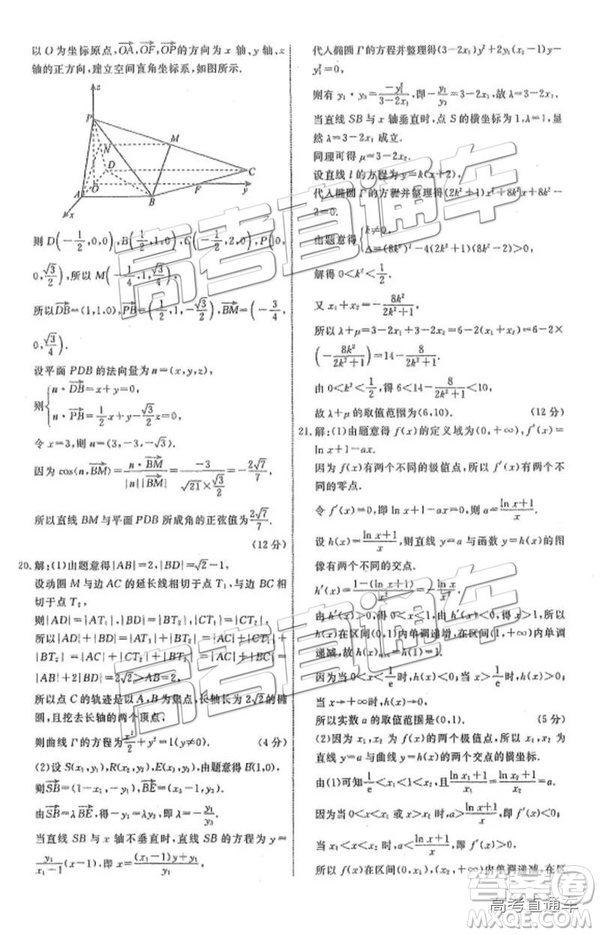 以 O 为坐标原点，OA，OF，OP 的方向为 x 轴、y 轴、z
轴的正方向，建立空间直角坐标系，如图所示.
z
P
N
M
D
C
A
O
B
F
y
x
则 D(-1/2,0,0),B(1/2,1,0),C(-1/2,2,0),P(0,
0,√3/2),所以 M(-1/4,1,√3/4).
所以DB=(1,1,0),PB=(1/2,1,-√3/2),BM=(-3/4,
0,√3/4).
设平面 PDB 的法向量为 n=(x,y,z),
则{n·DB=x+y=0
n·PB=1/2x+y-√3/2z=0
令 x=3,则 n=(3,-3,-√3).
因为 cos⟨n,BM⟩=n·BM/|n||BM|=-3/(√21×√3/2)=-2√7/7,
所以直线 BM 与平面 PDB 所成角的正弦值为2√7/7.
(12 分)
20.解:(1)由题意得|AB|=2,|BD|=√2-1,
设动圆 M 与边 AC 的延长线相切于点 T₁,与边 BC 相
切于点 T₂,
则|AD|=|AT₁|,|BD|=|BT₂|,|CT₁|=|CT₂|
所以|AD|+|BD|=|AT₁|+|BT₂|=|AC|+|CT₁|
+|BT₂|=|AC|+|CT₂|+|BT₂|=|AC|+|BC|=
|AB|+2|BD|=2√2>|AB|=2
所以点 C 的轨迹是以 A,B 为焦点,长轴长为 2√2 的椭
圆,且挖去长轴的两个顶点,
则曲线 Γ 的方程为x²/2+y²=1(y≠0).
(4 分)
(2)设 S(x₁,y₁),R(x₂,y₂),E(x₃,y₃),由题意得 B(1,0),
则SB=(1-x₁,-y₁),BE=(x₃-1,y₃).
由SB=λBE,得-y₁=λy₃,即 λ=-y₁/y₃
当直线 SB 与 x 轴不垂直时,直线 SB 的方程为 y=
y₁/(x₁-1)(x-1),即 x=((x₁-1)y+y₁)/y₁,
代入椭圆 Γ 的方程并整理得(3-2x₁)y²+2y₁(x₁-1)y
-y₁²=0,
则有 y₁·y₃=-y₁²/(3-2x₁),即-y₁/y₃=3-2x₁,故 λ=3-2x₁
当直线 SB 与 x 轴垂直时,点 S 的横坐标为 1,λ=1,显
然 λ=3-2x₁ 成立.
同理可得 μ=3-2x₂.
设直线 l 的方程为 y=k(x+2),
代入椭圆 Γ 的方程并整理得(2k²+1)x²+8k²x+8k²-
2=0,
由题意得{k²≠0
Δ=(8k²)²-4(2k²+1)(8k²-2)>0
解得 0<k²<1/2,
又 x₁+x₂=-8k²/(2k²+1)
所以 λ+μ=3-2x₁+3-2x₂=6-2(x₁+x₂)=6-2×
(-8k²/(2k²+1))=14-8/(2k²+1),
由 0<k²<1/2,得 6<14-8/(2k²+1)<10,
故 λ+μ 的取值范围为(6,10).
(12 分)
21.解:(1)由题意得 f(x)的定义域为(0,+∞),f′(x)=
ln x+1-ax.
因为 f(x)有两个不同的极值点,所以 f′(x)有两个不
同的零点.
令 f′(x)=0,即 ln x+1-ax=0,所以 a=(ln x+1)/x.
设 h(x)=(ln x+1)/x,则直线 y=a 与曲线 y=h(x)的图像
有两个不同的交点.
h′(x)=(1-(ln x+1))/x²=-ln x/x²,
由 h′(x)>0,得 0<x<1,由 h′(x)<0,得 x>1,
所以 h(x)在区间(0,1)内单调递增,在(1,+∞)内单调
递减,故 h(x)max=h(1)=1.
因为当 x→0 时,h(x)→-∞;
当 x→+∞时,h(x)→0,
所以实数 a 的取值范围是(0,1).
(5 分)
(2)因为 x₁,x₂ 为 f(x)的两个极值点,所以 x₁,x₂ 为
直线 y=a 与曲线 y=h(x)的两个交点的横坐标.
由(1)可知1/e<x₁<1<x₂,且(ln x₁+1)/x₁=(ln x₂+1)/x₂=a
因为当 0<x<x₁ 时,(ln x+1)/x<a,即 f′(x)<0,
当 x₁<x<x₂ 时,
所以 f(x)在区间(0,x₁)内单调递减,在区
高考直通车
高考直通车
答案圈
MXQE.COM
高考直通车